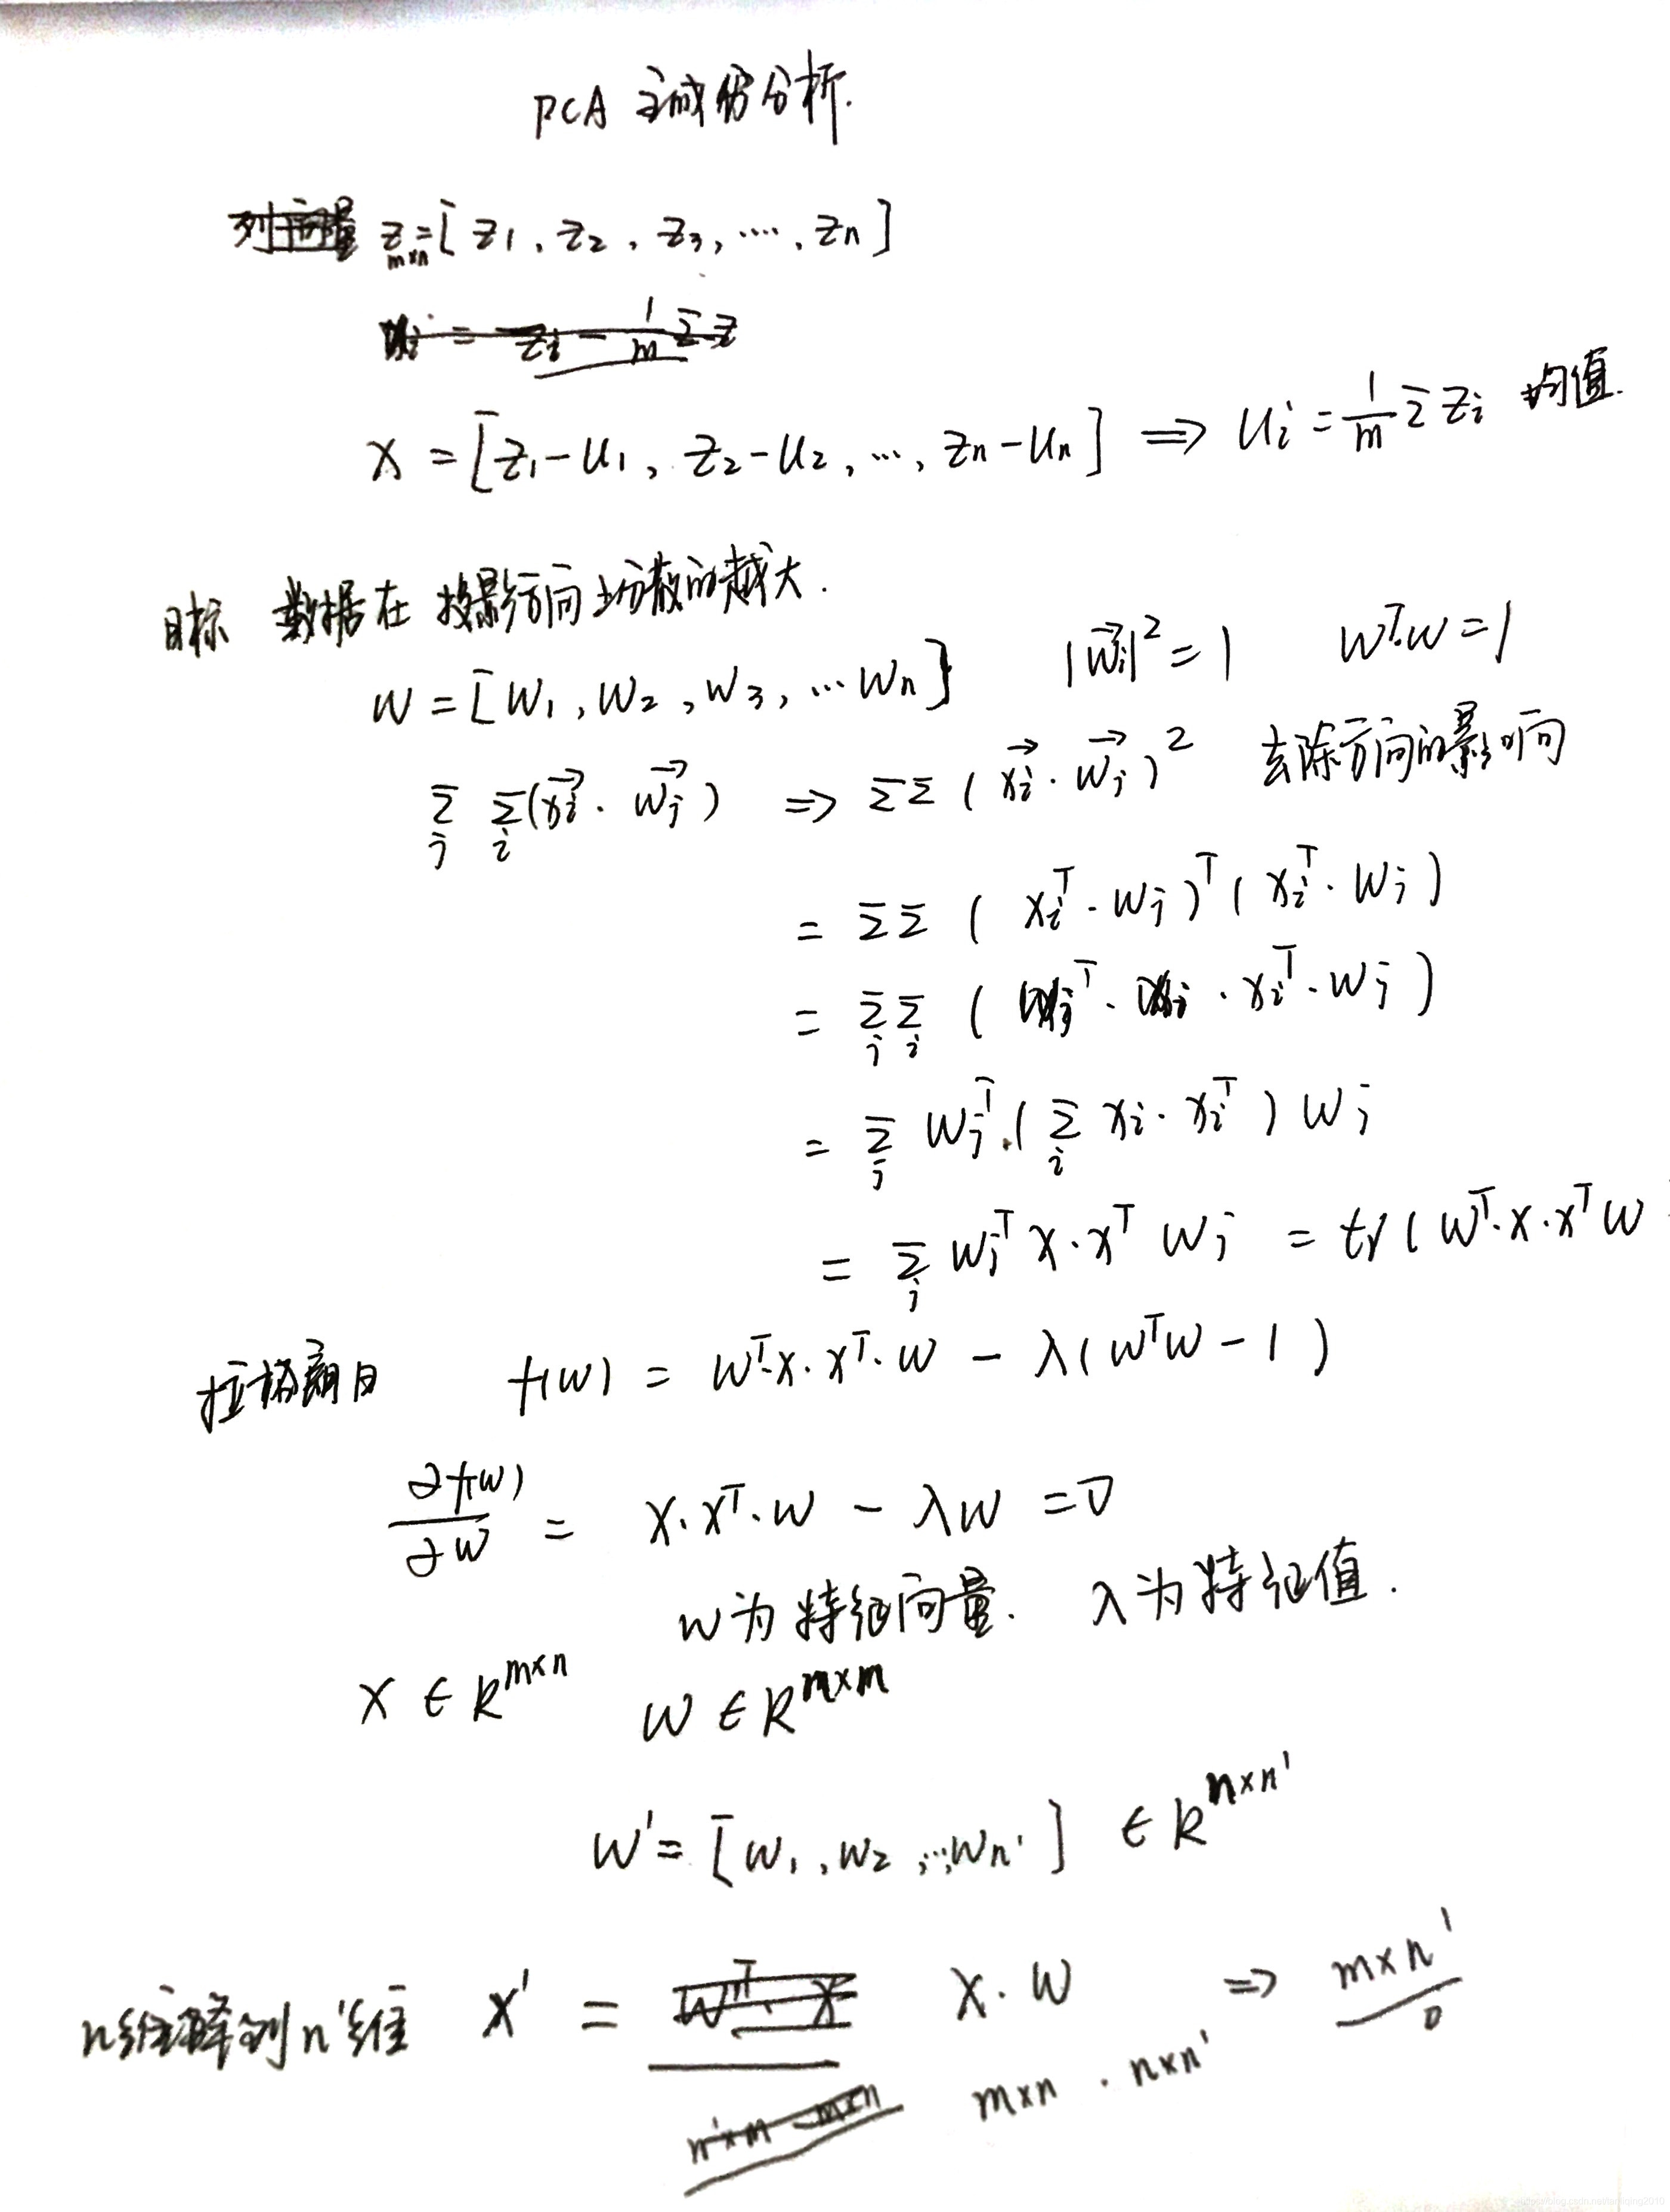 PCA 主成份分析.
列向量 Z_{m×n} = [ Z1, Z2, Z3, ...., Zn ]
x_i = Z_i - \frac{1}{m} Σ Z
X = [Z1-U1, Z2-U2, ..., Zn-Un] ⇒ U_i = \frac{1}{m} Σ Z_i 均值.
目标 数据在投影方向上分散的越大.
W = [W1, W2, W3, ...Wn] |\vec{W_i}|^2 = 1 W^T·W = 1
Σ_j Σ_i (\vec{x_i}·\vec{W_j}) ⇒ ΣΣ (\vec{x_i}·\vec{W_j})^2 去除方向的影响
= ΣΣ ( x_i^T·W_j )^T ( x_i^T·W_j )
= Σ_j Σ_i ( W_j^T·x_i·x_i^T·W_j )
= Σ_j W_j^T·( Σ_i x_i·x_i^T ) W_j
= Σ_j W_j^T X·X^T W_j = tr ( W^T·X·X^T W
拉格朗日 f(W) = W^T·X·X^T·W - λ( W^T W - 1 )
\frac{∂f(W)}{∂W} = X·X^T·W - λW = 0
W为特征向量. λ为特征值.
X ∈ R^{m×n} W ∈ R^{m×m}
W' = [W1, W2, ..., Wn'] ∈ R^{n×n'}
n维降到n'维 X' = W^T·X X·W ⇒ m×n'
n'×m m×n m×n · n×n'